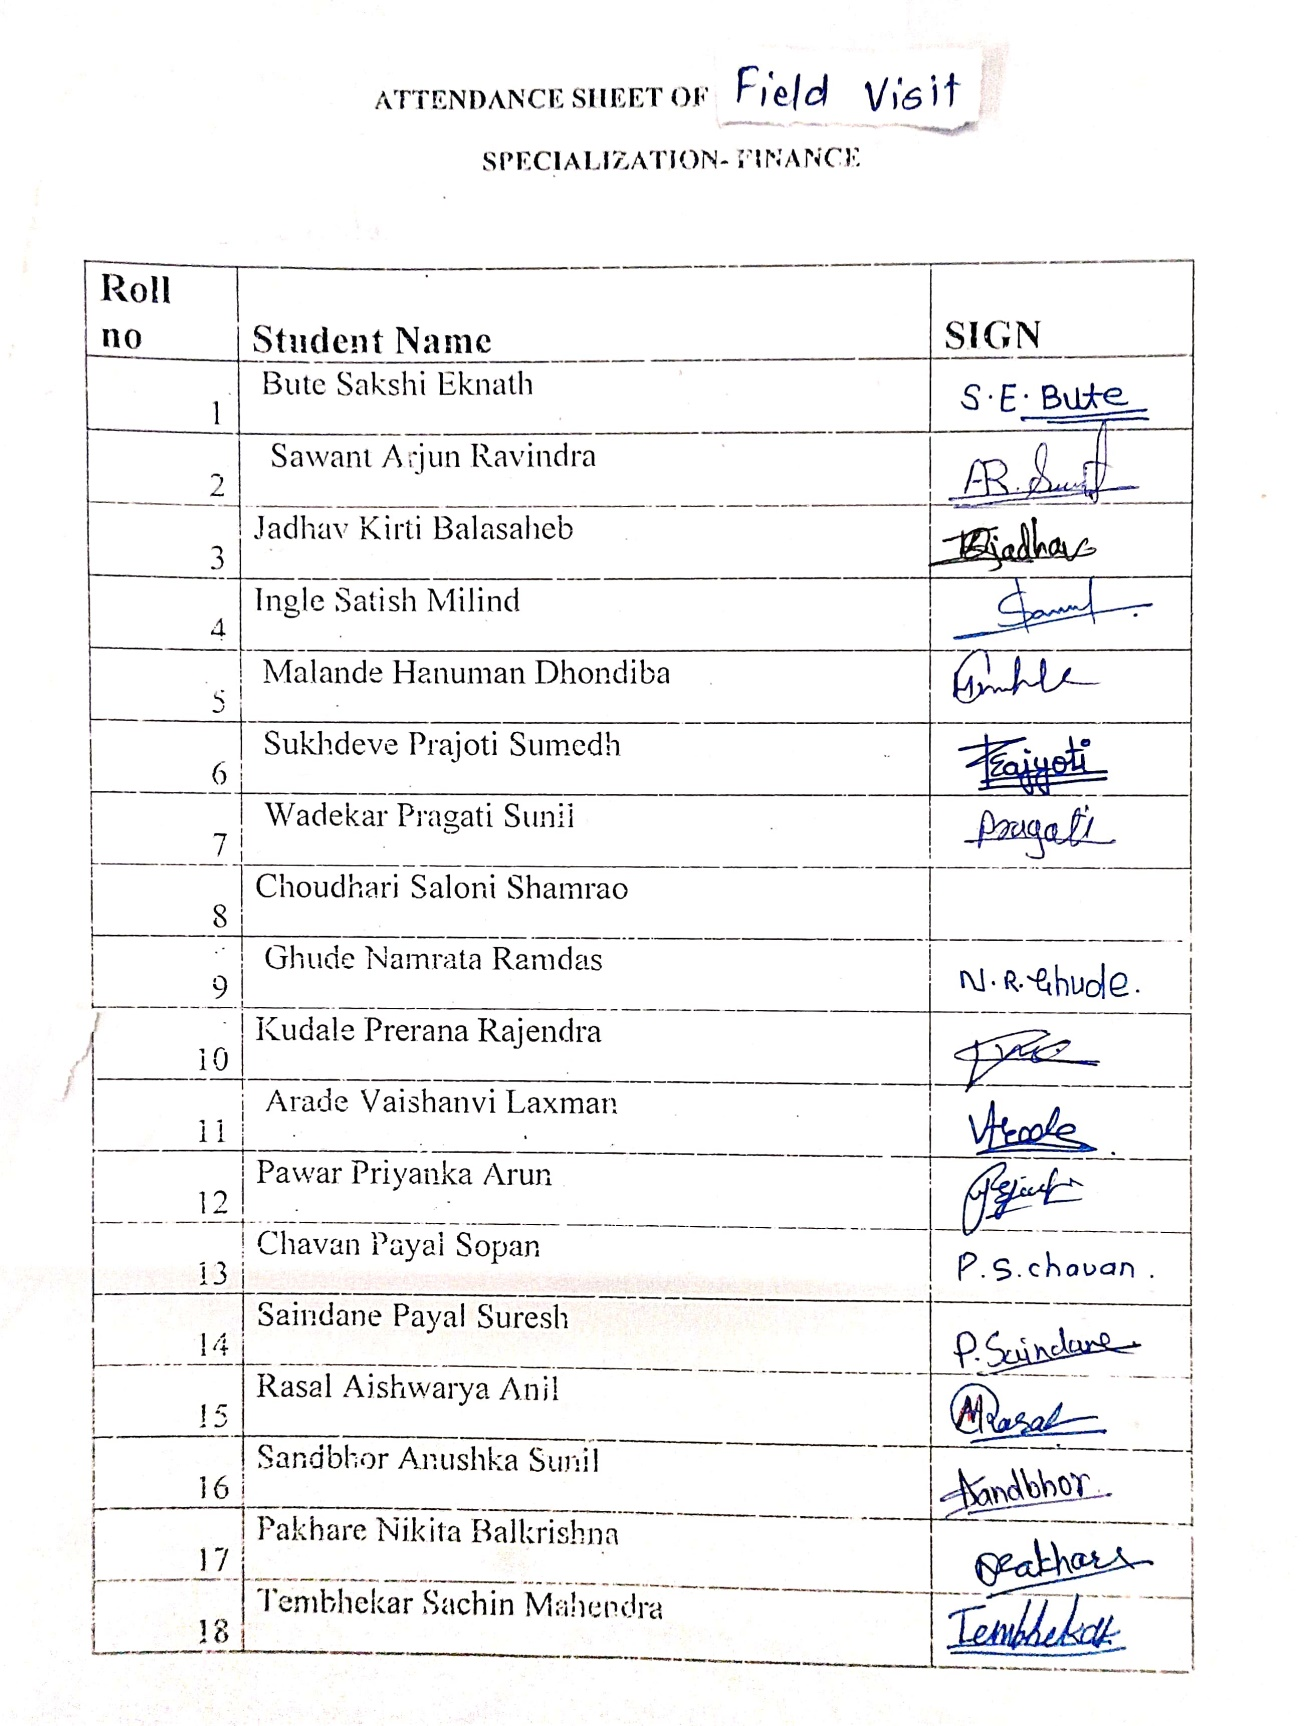 ATTENDANCE SHEET OF Field Visit
SPECIALIZATION- FINANCE
Roll no Student Name SIGN
1 Bute Sakshi Eknath S.E. Bute
2 Sawant Arjun Ravindra
3 Jadhav Kirti Balasaheb
4 Ingle Satish Milind
5 Malande Hanuman Dhondiba
6 Sukhdeve Prajoti Sumedh Prajyoti
7 Wadekar Pragati Sunil Pragati
8 Choudhari Saloni Shamrao
9 Ghude Namrata Ramdas N.R. Ghude.
10 Kudale Prerana Rajendra
11 Arade Vaishanvi Laxman
12 Pawar Priyanka Arun
13 Chavan Payal Sopan P.S. chavan.
14 Saindane Payal Suresh P. Saindane
15 Rasal Aishwarya Anil
16 Sandbhor Anushka Sunil Sandbhor.
17 Pakhare Nikita Balkrishna
18 Tembhekar Sachin Mahendra Tembhekar